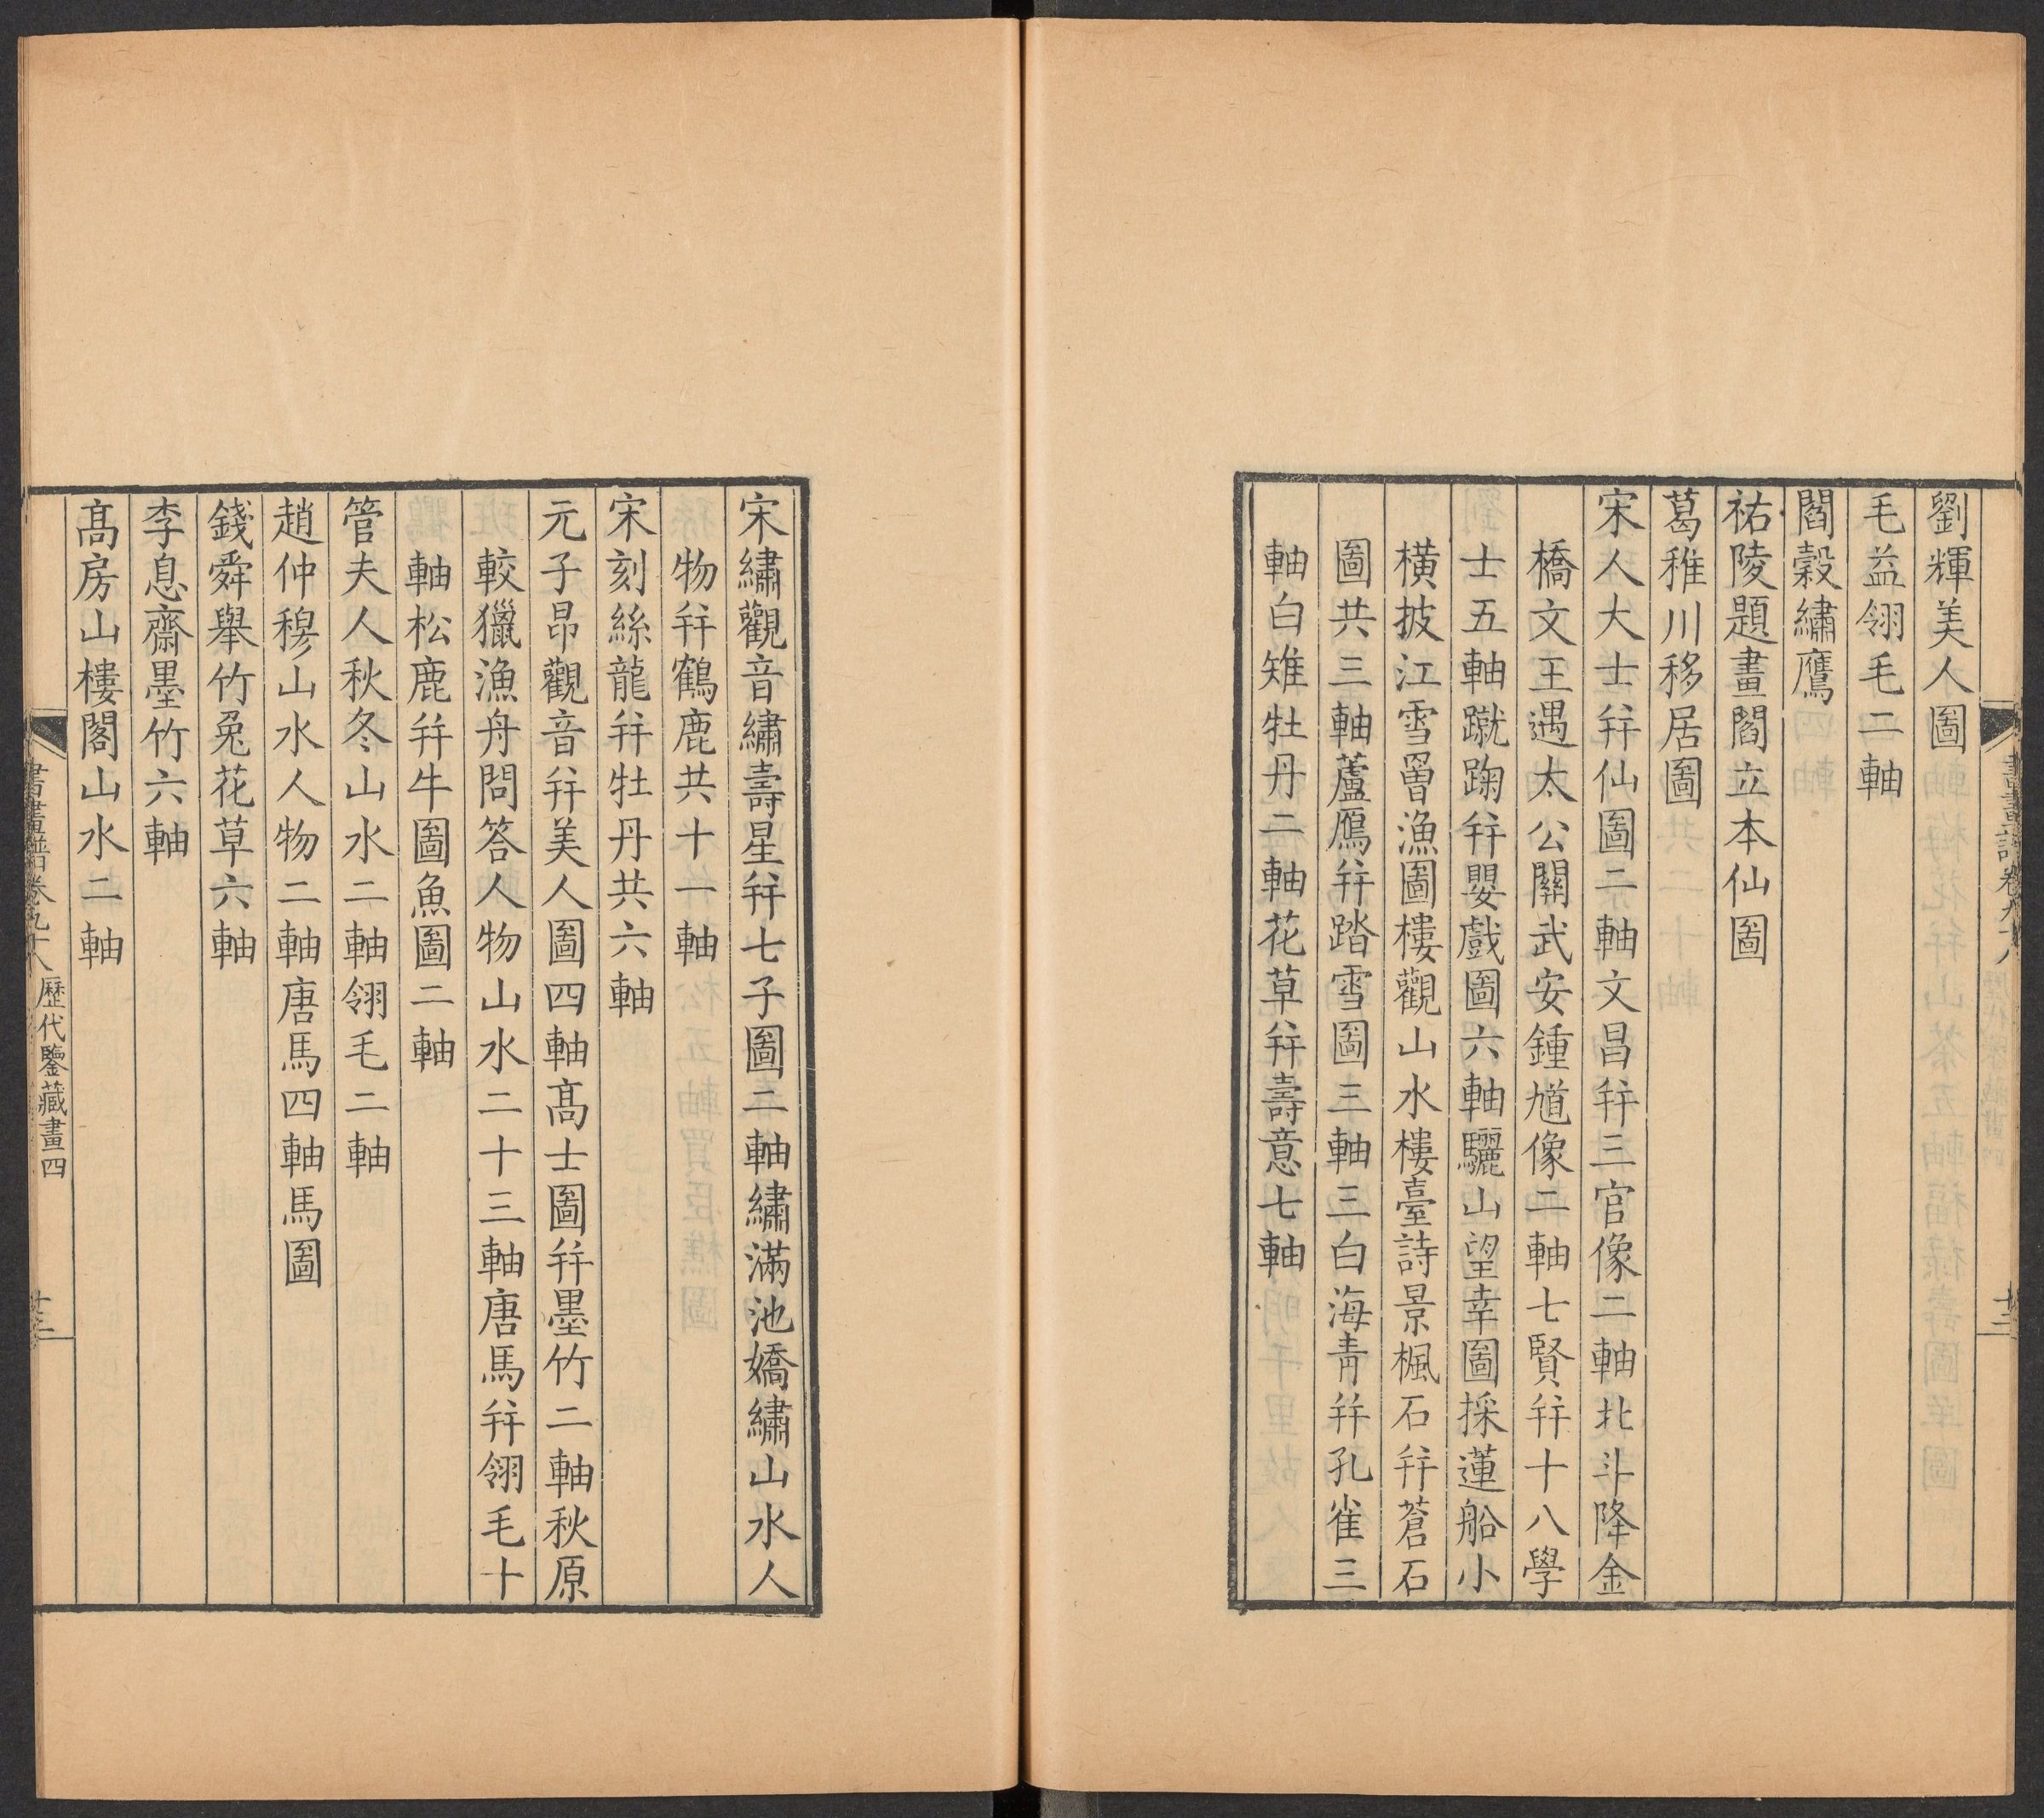 劉輝美人圖
毛益翎毛二軸
閻穀繡鷹
祐陵題畫閻立本仙圖
葛稚川移居圖
宋人大士幷仙圖二軸文昌幷三官像二軸北斗降金
橋文王遇太公關武安鍾馗像二軸七賢幷十八學
士五軸蹴踘幷嬰戲圖六軸驪山望幸圖採蓮船小
橫披江雪罾漁圖樓觀山水樓臺詩景楓石幷蒼石
圖共三軸蘆鴈幷踏雪圖三軸三白海靑幷孔雀三
軸白雉牡丹二軸花草幷壽意七軸
宋繡觀音繡壽星幷七子圖二軸繡滿池嬌繡山水人
物幷鶴鹿共十一軸
宋刻絲龍幷牡丹共六軸
元子昂觀音幷美人圖四軸髙士圖幷墨竹二軸秋原
較獵漁舟問答人物山水二十三軸唐馬幷翎毛十
軸松鹿幷牛圖魚圖二軸
管夫人秋冬山水二軸翎毛二軸
趙仲穆山水人物二軸唐馬四軸馬圖
錢舜舉竹兎花草六軸
李息齋墨竹六軸
髙房山樓閣山水二軸
書畫譜卷九十八 歷代鑒藏畫四